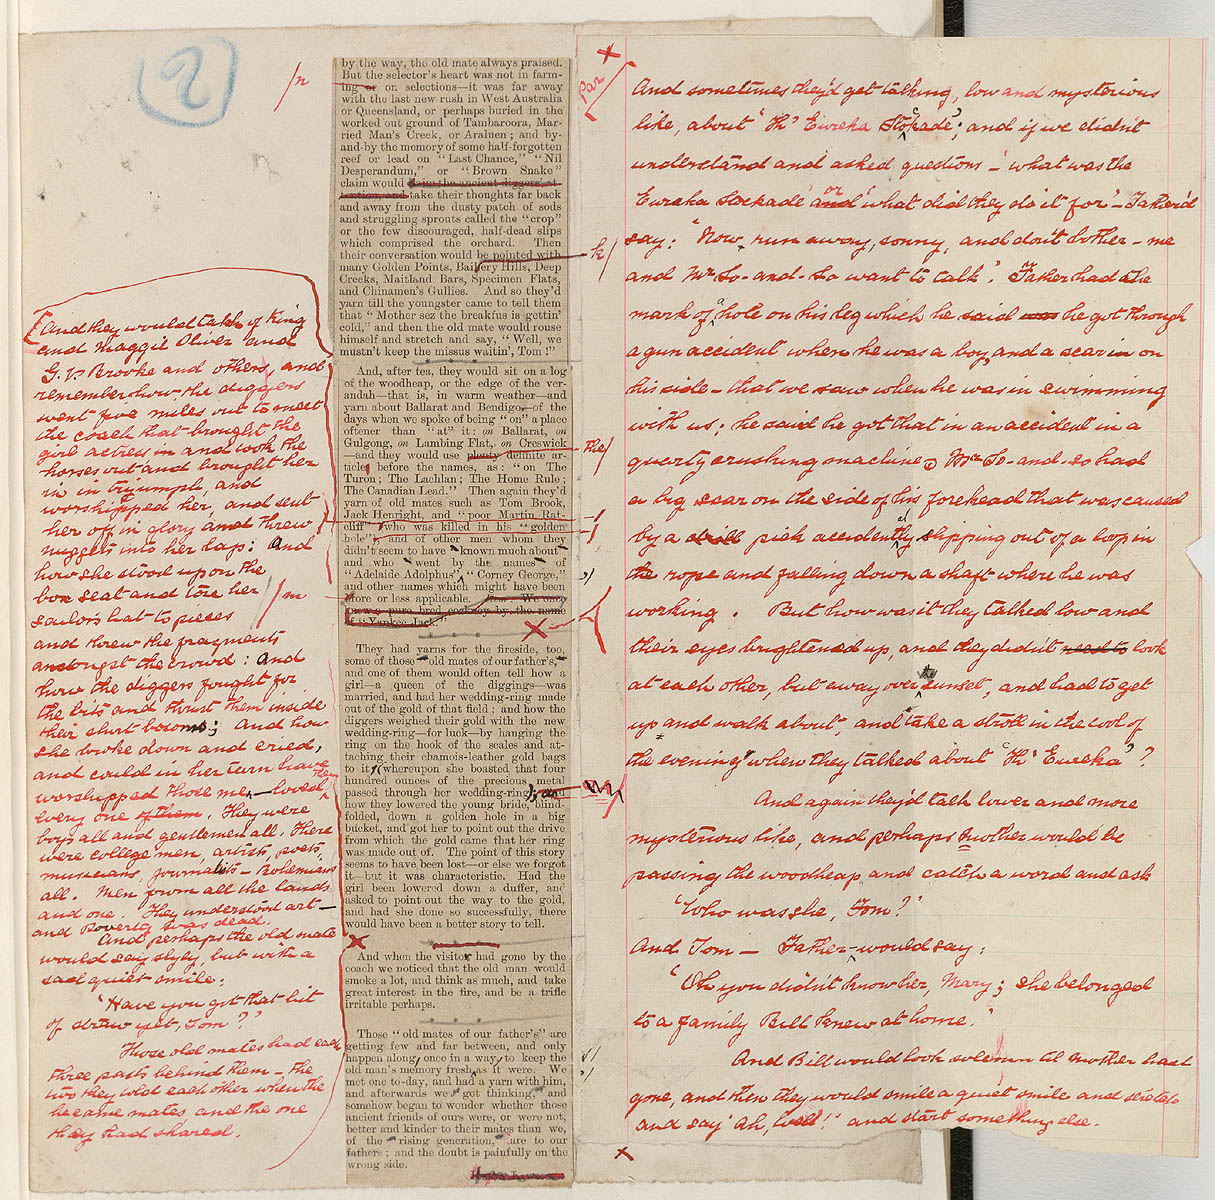 2
n
by the way, the old mate always praised.
But the selector's heart was not in farm-
ing or on selections—it was far away
with the last new rush in West Australia
or Queensland, or perhaps buried in the
worked out ground of Tambaroora, Mar-
ried Man's Creek, or Araluen; and by-
and-by the memory of some half-forgotten
reef or lead on "Last Chance," "Nil
Desperandum," or "Brown Snake"
claim would claim the ancient diggers' at-
tention, and take their thoughts far back
and away from the dusty patch of sods
and struggling sprouts called the "crop"
or the few discouraged, half-dead slips
which comprised the orchard. Then
their conversation would be pointed with
many Golden Points, Bailery Hills, Deep
Creeks, Maitland Bars, Specimen Flats,
and Chinamen's Gullies. And so they'd
yarn till the youngster came to tell them
that "Mother sez the breakfus is gettin'
cold," and then the old mate would rouse
himself and stretch and say, "Well, we
mustn't keep the missus waitin', Tom!"
k/
And, after tea, they would sit on a log
of the woodheap, or the edge of the ver-
andah—that is, in warm weather—and
yarn about Ballarat and Bendigo—of the
days when we spoke of being "on" a place
oftener than "at" it: on Ballarat, on
Gulgong, on Lambing Flat, on Creswick
—and they would use plenty definite ar-
ticles before the names, as: "on The
Turon; The Lachlan; The Home Rule;
The Canadian Lead." Then again they'd
yarn of old mates such as Tom Brook,
Jack Henright, and "poor Martin Rat-
cliff" who was killed in his "golden
hole", and of other men whom they
didn't seem to have "known much about"
and who "went by the names" of
"Adelaide Adolphus", "Corney George,"
and other names which might have been
more or less applicable.
if "Yankee Jack."
the/
m
They had yarns for the fireside, too,
some of those "old mates of our father's,"
and one of them would often tell how a
girl—a queen of the diggings—was
married, and had her wedding-ring made
out of the gold of that field; and how the
diggers weighed their gold with the new
wedding-ring—for luck—by hanging the
ring on the hook of the scales and at-
taching their chamois-leather gold bags
to it, (whereupon she boasted that four
hundred ounces of the precious metal
passed through her wedding-ring); and
how they lowered the young bride, blind-
folded, down a golden hole in a big
bucket, and got her to point out the drive
from which the gold came that her ring
was made out of. The point of this story
seems to have been lost—or else we forgot
it—but it was characteristic. Had the
girl been lowered down a duffer, and
asked to point out the way to the gold,
and had she done so successfully, there
would have been a better story to tell.
And when the visitor had gone by the
coach we noticed that the old man would
smoke a lot, and think as much, and take
great interest in the fire, and be a trifle
irritable perhaps.
Those "old mates of our father's" are
getting few and far between, and only
happen along once in a way to keep the
old man's memory fresh, as it were. We
met one to-day, and had a yarn with him,
and afterwards we got thinking, and
somehow began to wonder whether those
ancient friends of ours were, or were not,
better and kinder to their mates than we,
of the "rising generation," are to our
fathers; and the doubt is painfully on the
wrong side.
Henry Lawson
And they would talk of King
and Maggie Oliver and
G. V. Brooke and others, and
remember how the diggers
went five miles out to meet
the coach that brought the
girl actress in and took the
horses out and brought her
in in triumph, and
worshipped her, and sent
her off in glory and threw
nuggets into her lap: And
how she stood up on the
box seat and tore her
sailor hat to pieces
and threw the fragments
amongst the crowd: and
how the diggers fought for
the bits and thrust them inside
their shirt bosoms; And how
she broke down and cried,
and could in her turn have
worshipped those men—loved them
every one of them. They were
boys all and gentlemen all. There
were college men, artists, poets,
musicians, journalists—Bohemians
all. Men from all the lands
and one. They understood art—
and Poverty was dead.
And perhaps the old mate
would say slyly, but with a
sad quiet smile:
'Have you got that bit
of straw yet, Tom?'
Those old mates had each
three pasts behind them—the
two they told each other when they
became mates and the one
they had shared.
Par
And sometimes they'd get talking, low and mysterious
like, about 'Th' Eureka Stockade'; and if we didn't
understand and asked questions—'what was the
Eureka Stockade' or 'what did they do it for'—Father'd
say: 'Now, run away, sonny, and don't bother—me
and Mr So-and-So want to talk.' Father had the
mark of a hole on his leg which he said was he got through
a gun accident when he was a boy, and a scar in on
his side—that we saw when he was in swimming
with us; he said he got that in an accident in a
quartz crushing machine. Mr So-and-so had
a big scar on the side of his forehead that was caused
by a drill pick accidently slipping out of a loop in
the rope and falling down a shaft where he was
working. But how was it they talked low and
their eyes brightened up, and they didn't used to look
at each other, but away over the sunset, and had to get
up and walk about, and take a stroll in the cool of
the evening when they talked about 'Th' Eureka'?
And again they'd talk lower and more
mysterious like, and perhaps Mother would be
passing the woodheap and catch a word and ask
'Who was she, Tom?'
And Tom—Father—would say:
'Oh you didn't know her, Mary; she belonged
to a family Bill knew at home.'
And Bill would look solemn til Mother had
gone, and then they would smile a quiet smile and stretch
and say 'Ah, well!' and start something else.